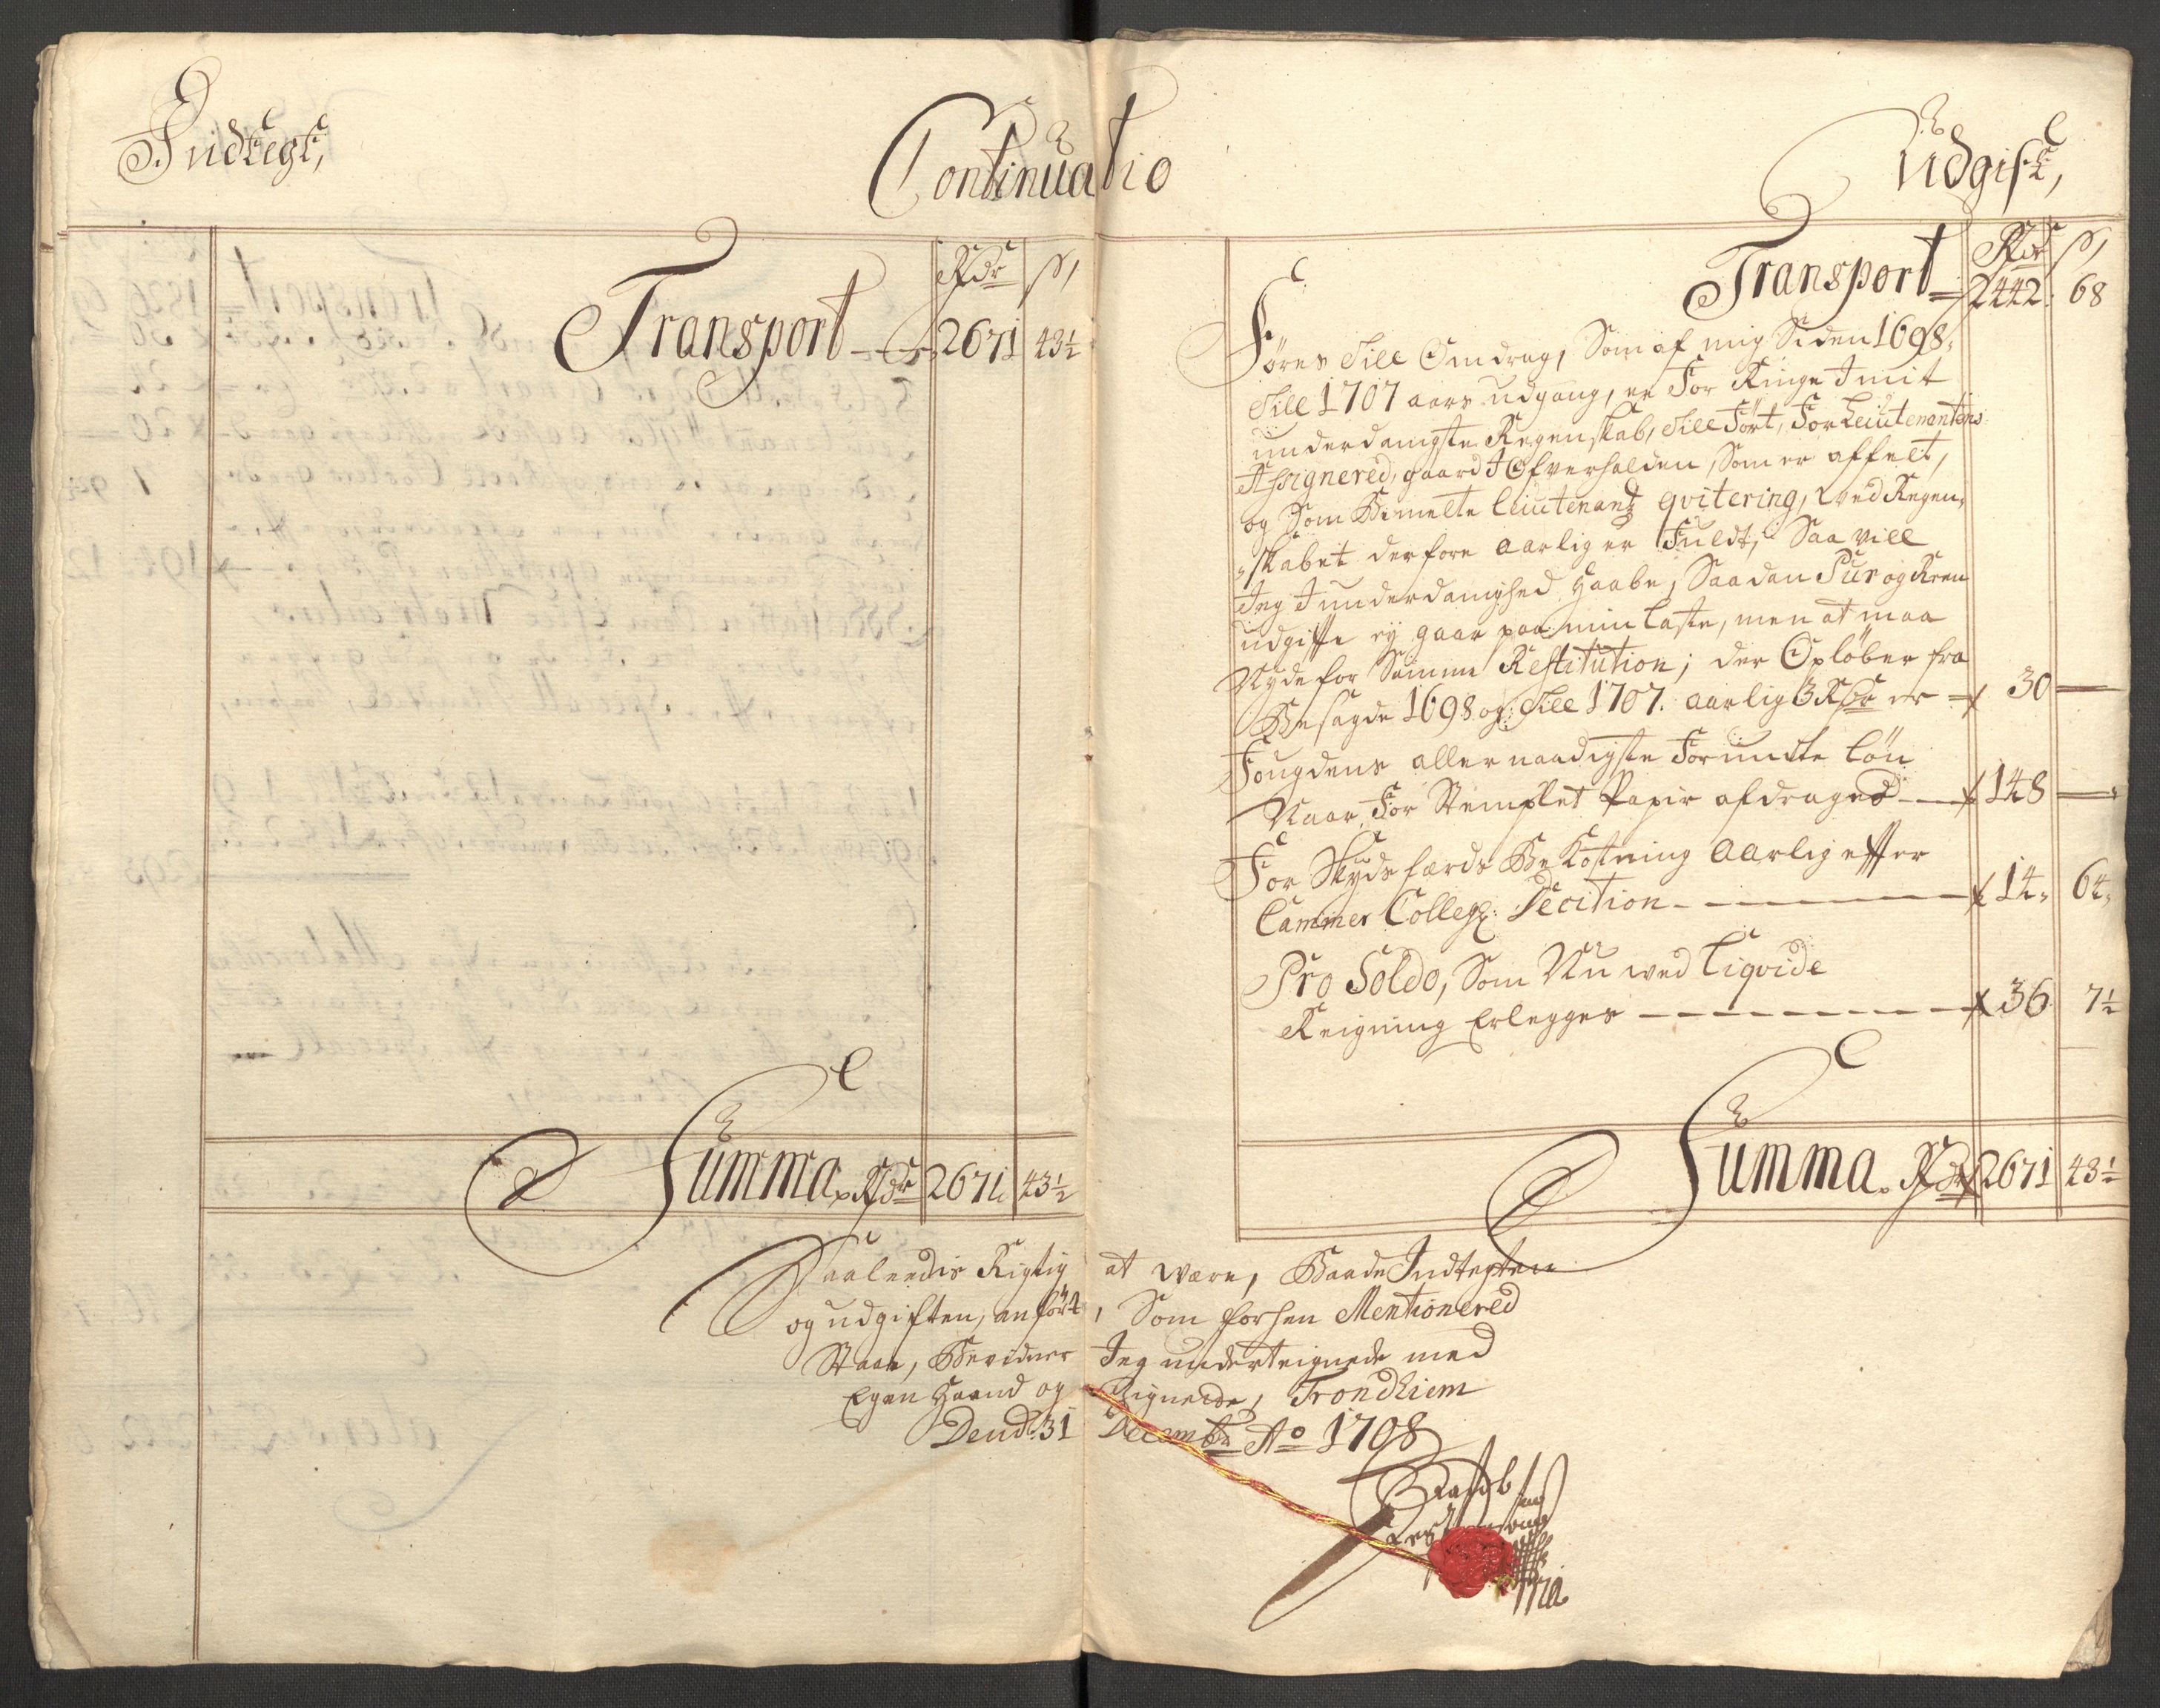 Indtegt,
Continuatio
Udgift,
Rdr ß
Transport 2671 43½
Summa Rdr 2671 43½
Rdr ß
Transport 2442: 68
Føres till Omdrag, Som af mig Siden 1698,
till 1707 aars udgang, er For Ringe I mit
underdanigste Regenskab, till Ført, For Leiutenantens
Assignered, gaard I Ofverhalden, Som er affelt,
og Som Bemelte Leiutenantz qvitering, ved Regen,
skabet derfore aarlig er Fuldt, Saa vill
Jeg I underdanighed haabe, Saadan Pur og Reen
udgifft ey gaar paa min Laste, men at maa
Nyde for Samme Restitution; der Opløber fra
Besagde 1698 og till 1707. aarlig 3 Rdr er 30 —
Fougdens aller naadigste Forundte Løn
Naar For Stemplet Papir afdraged 148 —
For Skyds færds Bekostning aarlig effter
Cammer Colleg: Decition 14, 64,
Pro Soldo, Som Nu wed Liqvide
Reigning Erlegges 36 7½
Summa. Rdr 2671 43½
Saaleedis Rigtig at være, Baade Indtegten
og udgiften, anført, Som forhen Mentionered
Staar, Bevidner Jeg underteignede med
Egen Haand og Zignete, Trondhiem
Dend 31 Decembr Ao 1708